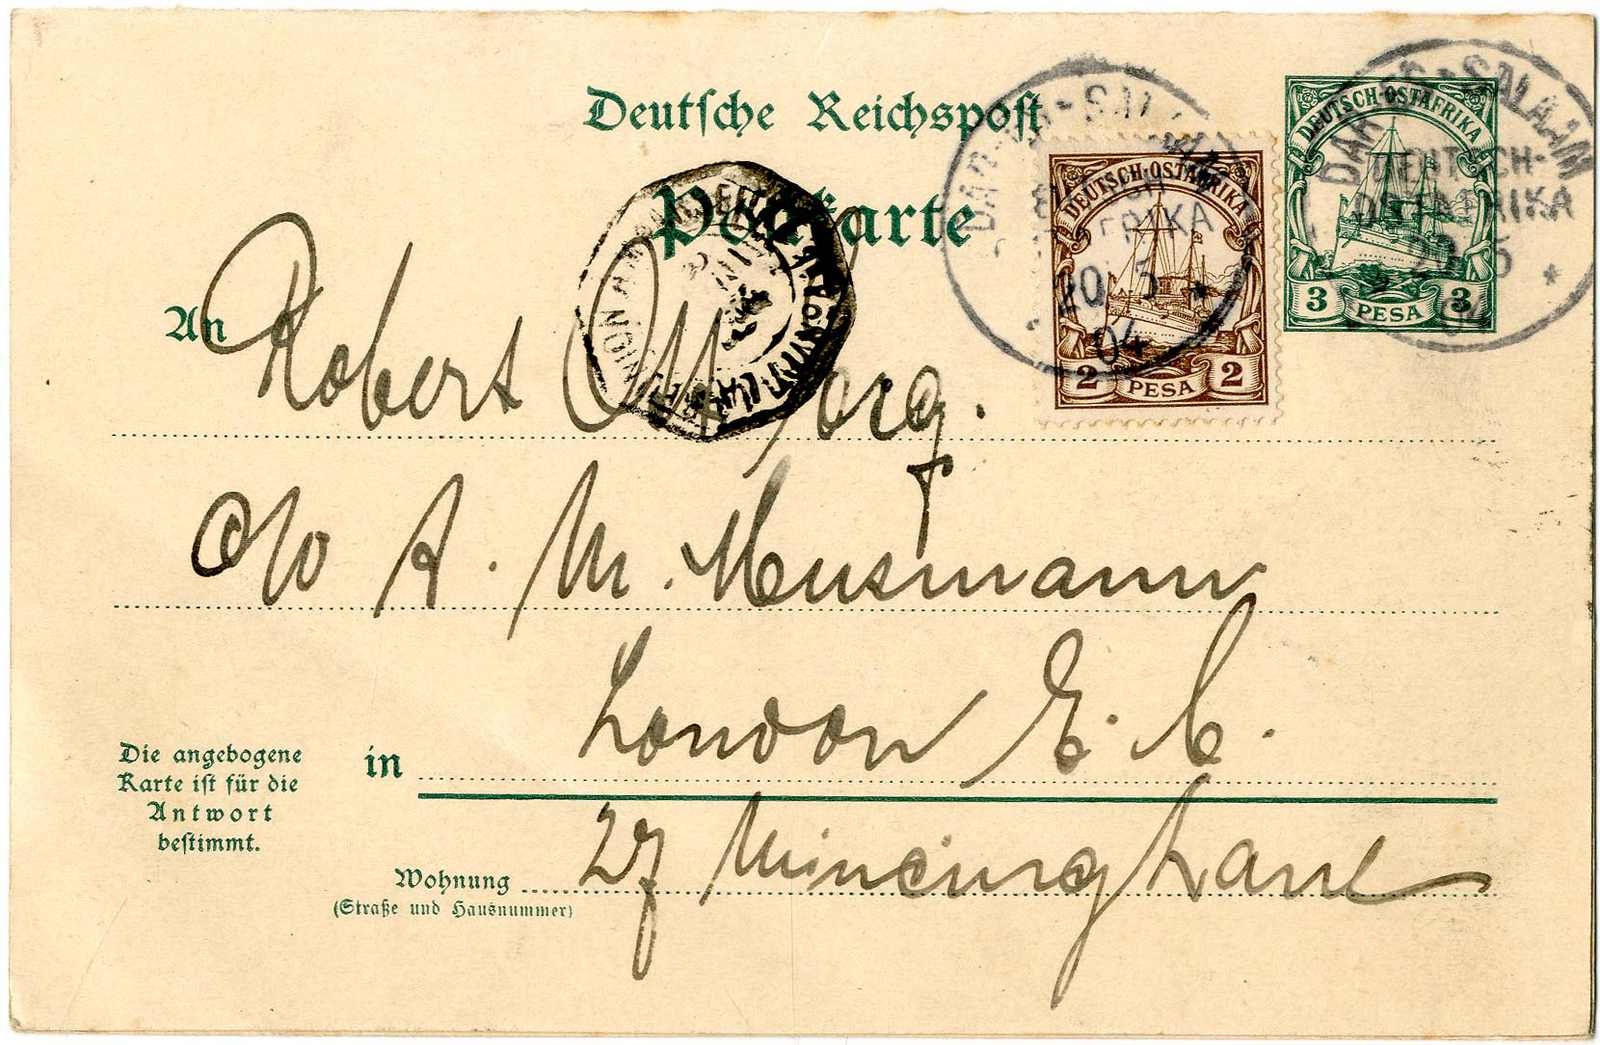 Deutsche Reichspost
Postkarte
DAR-ES-SALAAM
DEUTSCH-
OSTAFRIKA
20 5
04
DEUTSCH-OSTAFRIKA
2 PESA 2
DAR-ES-SALAAM
DEUTSCH-
OSTAFRIKA
20 5
04
DEUTSCH-OSTAFRIKA
3 PESA 3
An Robert
c/o A. M. Musmann
in London E. C.
Die angebogene
Karte ist für die
Antwort
bestimmt.
Wohnung 27 Mincing Lane
(Straße und Hausnummer)